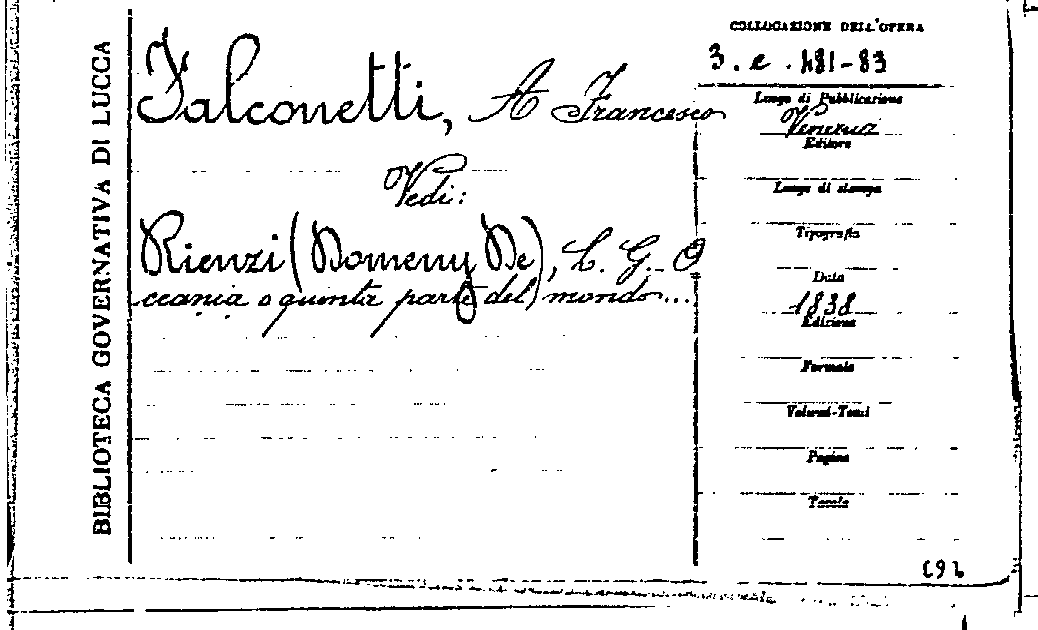 BIBLIOTECA GOVERNATIVA DI LUCCA
Falconetti, A Francesco
Vedi:
Rienzi (Domeny De), L. G. O
ceania o quinta parte del mondo...
COLLOCAZIONE DELL'OPERA
3. e. 481-83
Luogo di Pubblicazione
Venezia
Editore
Luogo di stampa
Tipografia
Data
1838
Edizione
Formato
Volumi-Tomi
Pagine
Tavole